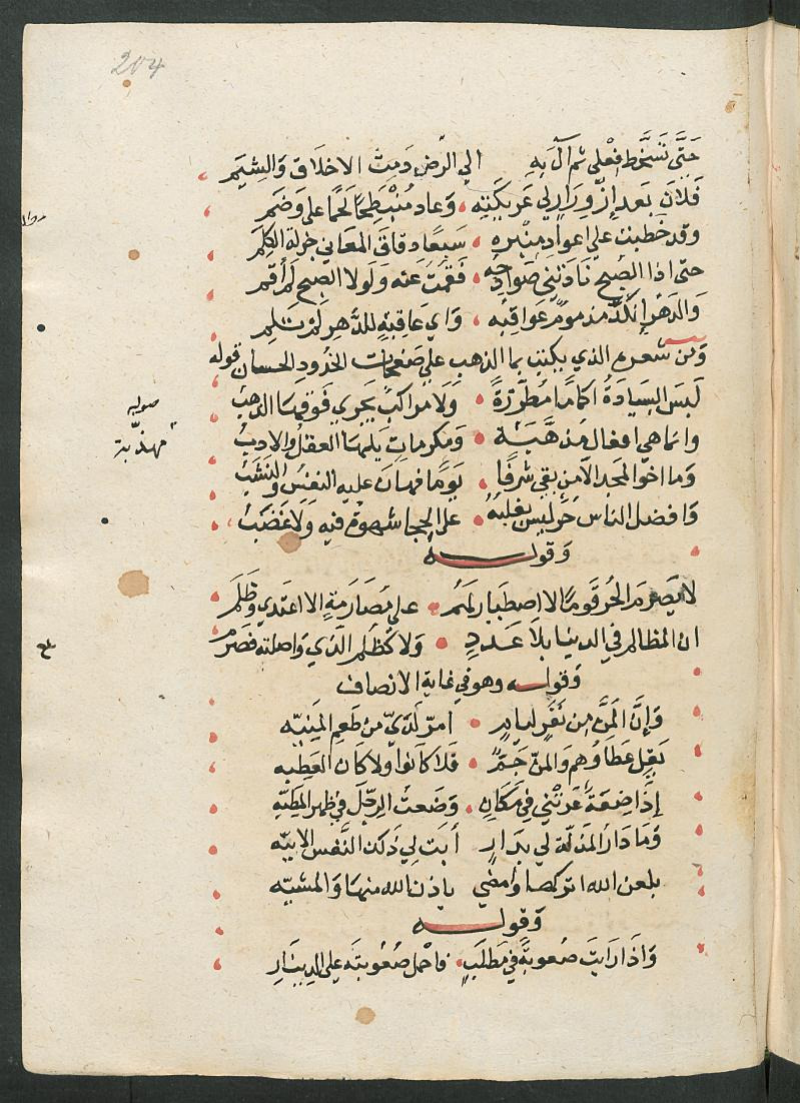 204
حَتَّى تَسَخَّطَ فِعْلِي ثم آلَ بِهِ الي الرضي دَمِثَ الاخلَاقِ وَالشِيَم
فَلَانَ بَعد إزْوِرَارٍ لي عَرِيكَتِه وَعاد مُنْبَطِحًا لَحمًا على وَضَم
وقد خَطبت علي اعوادِ مِنْبَرِه سَبعًا دِقَاقَ المعَاني جَزلةَ الكلم
حتى اذا الصُبح نَادَتني صَوادِحُه فَقمتُ عَنه وَلَولا الصبح لم أقم
وَالدَهرُ إنكَدُ مذمومٌ عواقبه وَاي عَاقِبةٍ للدَّهرِ لم تُـلم
وَمن شعره الذي يكتب بما الذهب علي صَفحات الخُدودِ الحسان قوله
لَيسَ السِيَادَةُ اكمامًا مُطَرَّزَةً وَلَا مراكب يَجري فَوقَها الذهبُ
وانما هي افعال مُذهَّبَة وَمَكرمات يَلِيها العقل والادبُ
صوابه
مهذّبة
وَما اخوا المجد الَا من بقي شرفًا يَومًا فهانَ عليه النفسُ والنَشَبُ
وَافضل الناس حُرّ ليس يغلبهُ على الحِجا شهوةٌ فيه وَلَا غَضَبُ
وَقولــــه
لا يَصرم الحُر قَومًا لا اصطبار لهمُ علي مُصَارَمةٍ الا اعتدي وَظَلَم
ان المظالم في الدنيا بلَا عَددٍ وَلا كظُلم الذي وَاصلته فصرم
وَقولــه وهو في غاية الانصاف
وَإنَّ المَنَّ من نَفَرٍ لِيامٍ امرّ لَدَيّ من طَعم المَنِيّه
يَقِل عَطاوُهم وَالمنّ جَمٌّ فَلَا كانوا ولا كان العَطِيه
إذَا ضِعَةٌ عَرَتْني في مَكَانٍ وَضَعتُ الرِحلَ في ظهر المَطيّه
وَمَا دَارُ المَذَلّة لي بدارٍ أبَت لي ذَلك النَّفس الابيّه
بلعن الله اتركها وَامضي باذن الله منها وَالمشيّه
وَقولــــه
وَاذَا رَايتَ صُعوبةً في مَطلَبٍ فاحمل صُعُوبتَه على الدينار